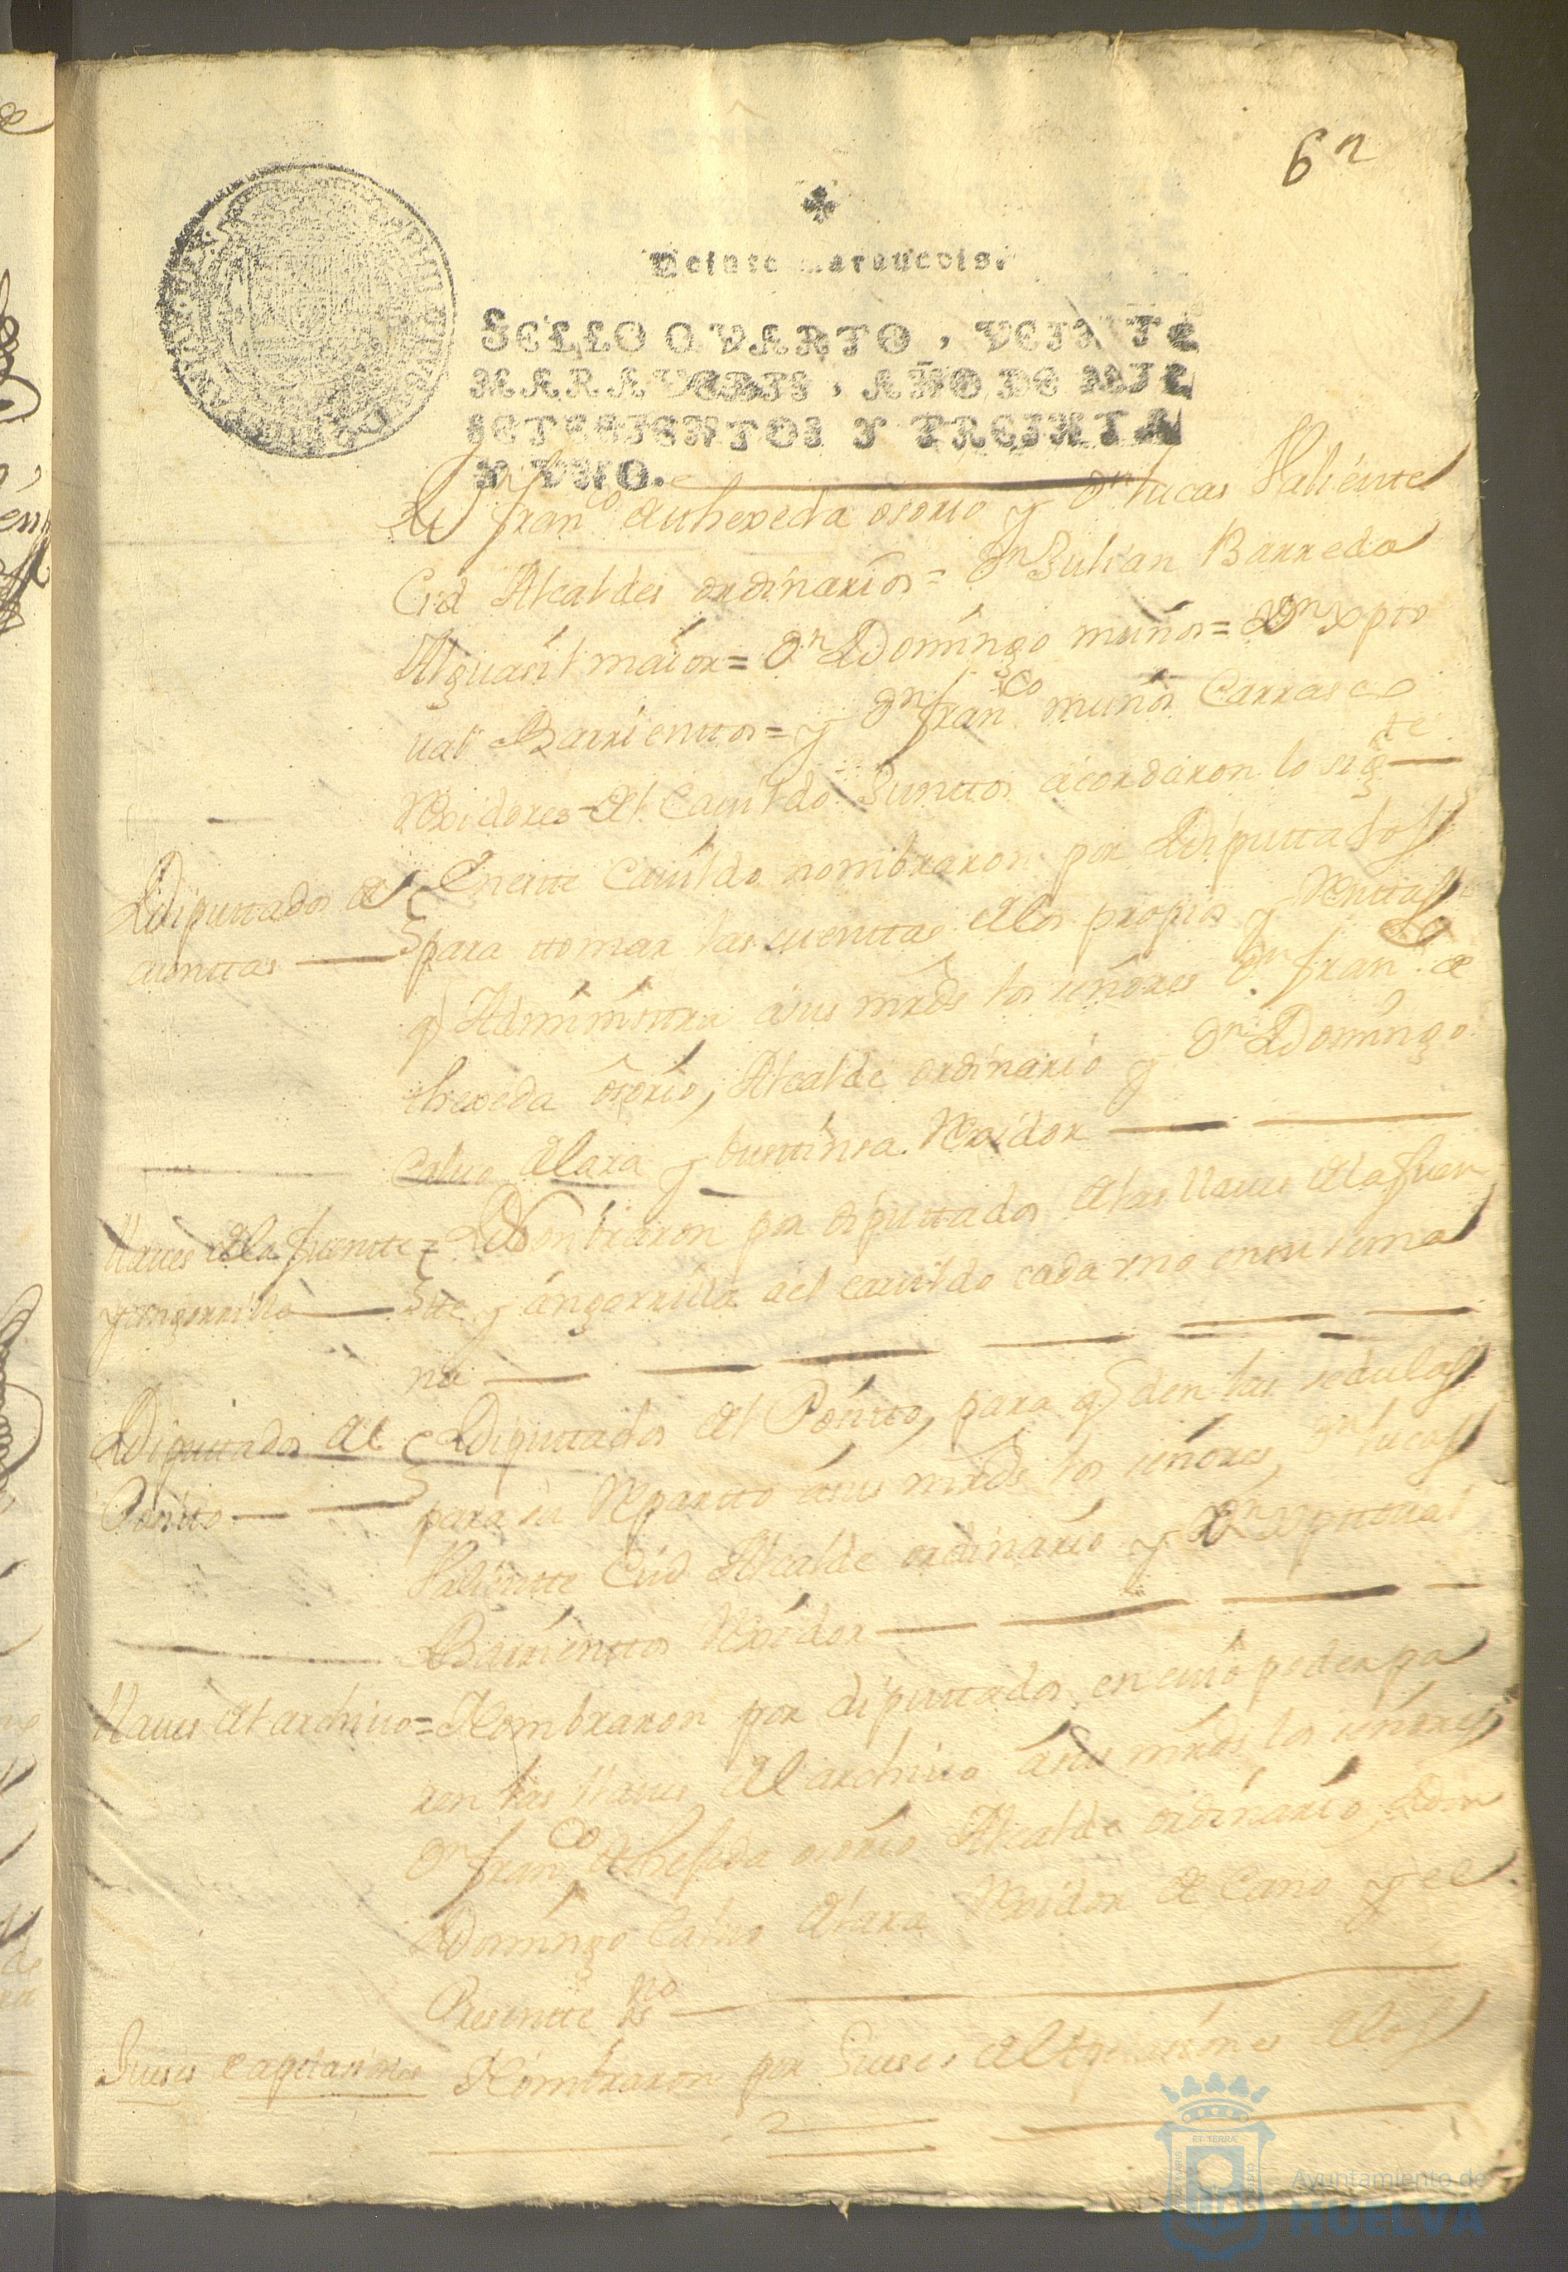 62
Veinte maravedis.
SELLO QVARTO, VEINTE
MARAVEDIS, AÑO DE MIL
SETECIENTOS Y TREINTA
Y VNO.
Dn franco dethexeda osorio y Dn lucas Valiente
Cid Alcaldes ordinarios = Dn Julian Barreda
Alguasil maior = Dn Domingo muños = Dn xpto
ual Barrientos = y Dn franco muños Carrasco
Rexidores = Al Cauildo Juntos acordaron lo sigte
Diputtados de
cuenttas
Enestte Cauildo nombraron por Diputtados
para ttomar las cuenttas delos propios y Renttas
q Administtra asus mrds los señores Dn franco de
thexeda osorio, Alcalde ordinario y Dn Domingo
Caluo delara y bustinsa Rexidor
llaues dela fuentte =
y angarilla
Nombraron por diputtados delas llaues dela fuen
tte y angarilla del cauildo cada vno ensu sema
na
Diputtados del
Positto
Diputtados del Positto, para q den las sedulas
para su Repartto asus mrds los señores Dn lucas
Valientte Cid Alcalde ordinario y Dn xpttoual
Barrienttos Rexidor
llaues del archiuo =
Nombraron por diputtados en cuio poder pa
ren las llaues del archiuo asus mrds los señores
Dn franco detheseda osorio Alcalde ordinario, Don
Domingo Caluo delara Rexidor de Cano y el
Presentte Esno
Jueses capitasiones
Nombraron por Jueses de los
Ayuntamiento de
HUELVA